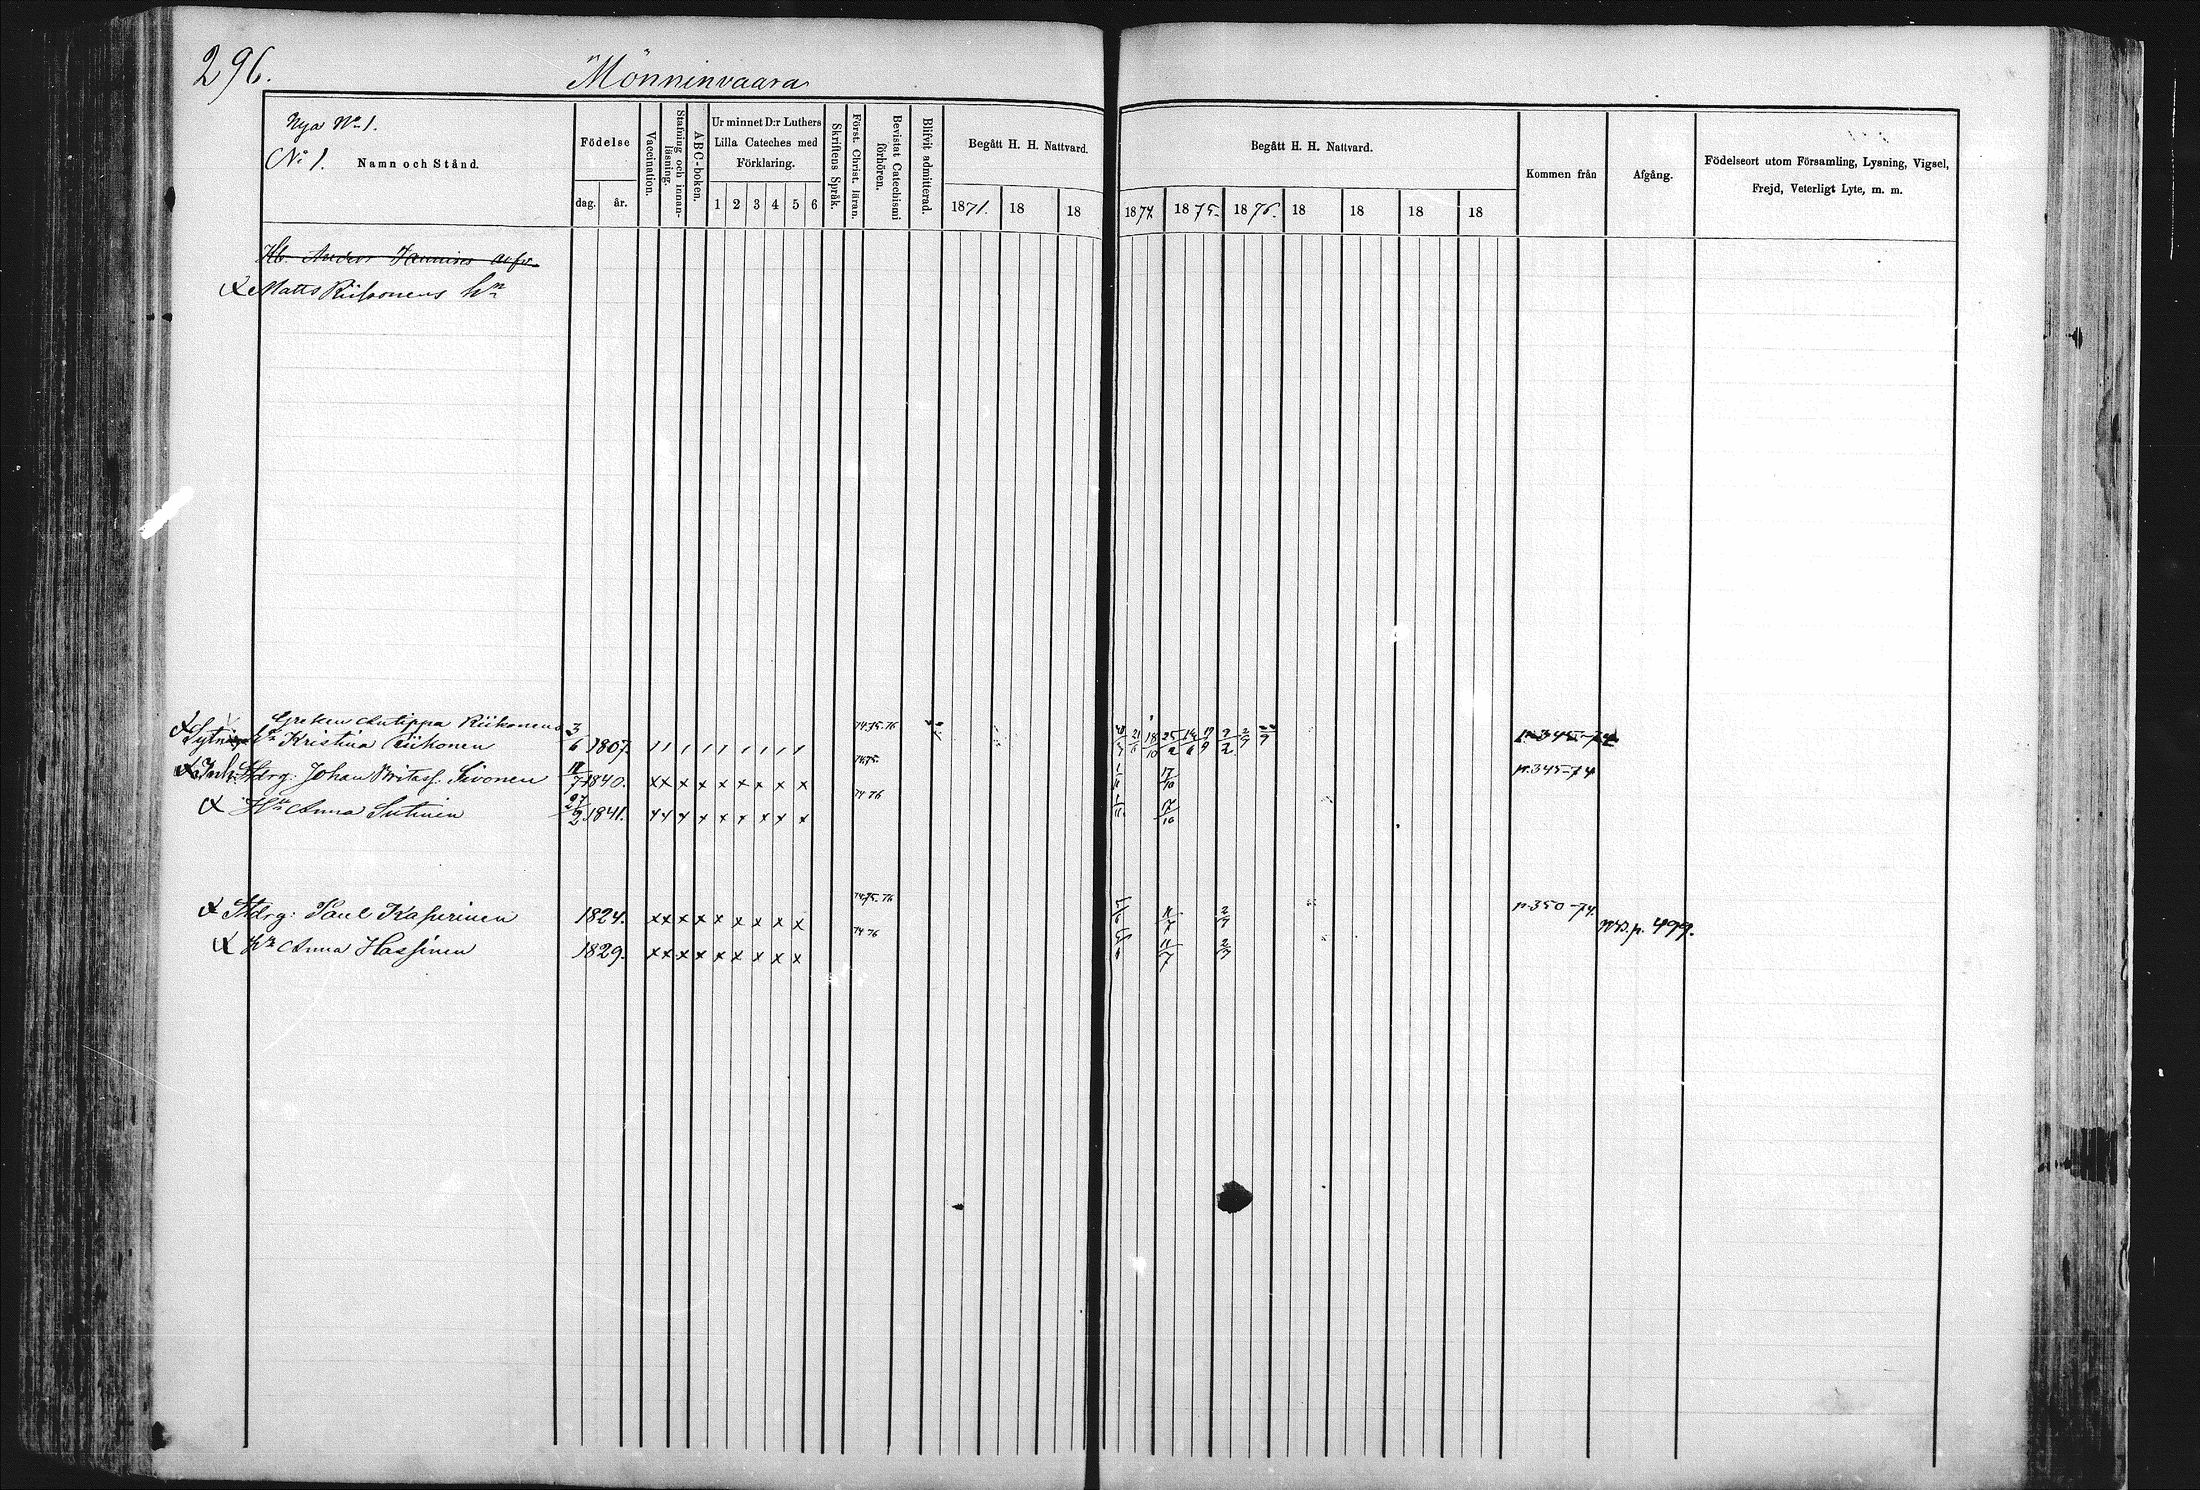 296.
Mönninvaara
Nya No 1.
No 1. Namn och Stånd.
Födelse
dag. år.
Vaccination.
Stafning och innanläsning.
ABC-boken.
Ur minnet D:r Luthers
Lilla Cateches med
Förklaring.
1 2 3 4 5 6
Skriftens Språk.
Först. Christ. läran.
Bevistat Catechismi förhören.
Blifvit admitterad.
Begått H. H. Nattvard.
1871. 18 18
Begått H. H. Nattvard.
1874 1875. 1876. 18 18 18 18
Kommen från
Afgång.
Födelseort utom Församling, Lysning, Vigsel,
Frejd, Veterligt Lyte, m. m.
Matts Riikonens hn
Greken Antippa Riikonens 74 75. 76
Kristina Riikonen 3/6 1807. p. 345-74
Inh. Johan Sivonen 1840. x x x x x x x x x 74 75. p. 345-74
Hu Anna Sutinen 27/2 1841. x x x x x x x x x 74 76
Paul Kasurinen 1824. x x x x x x x x x 74 75. 76 p. 350-74. p. 499.
Hu Anna Hassinen 1829. x x x x x x x x x 74 76